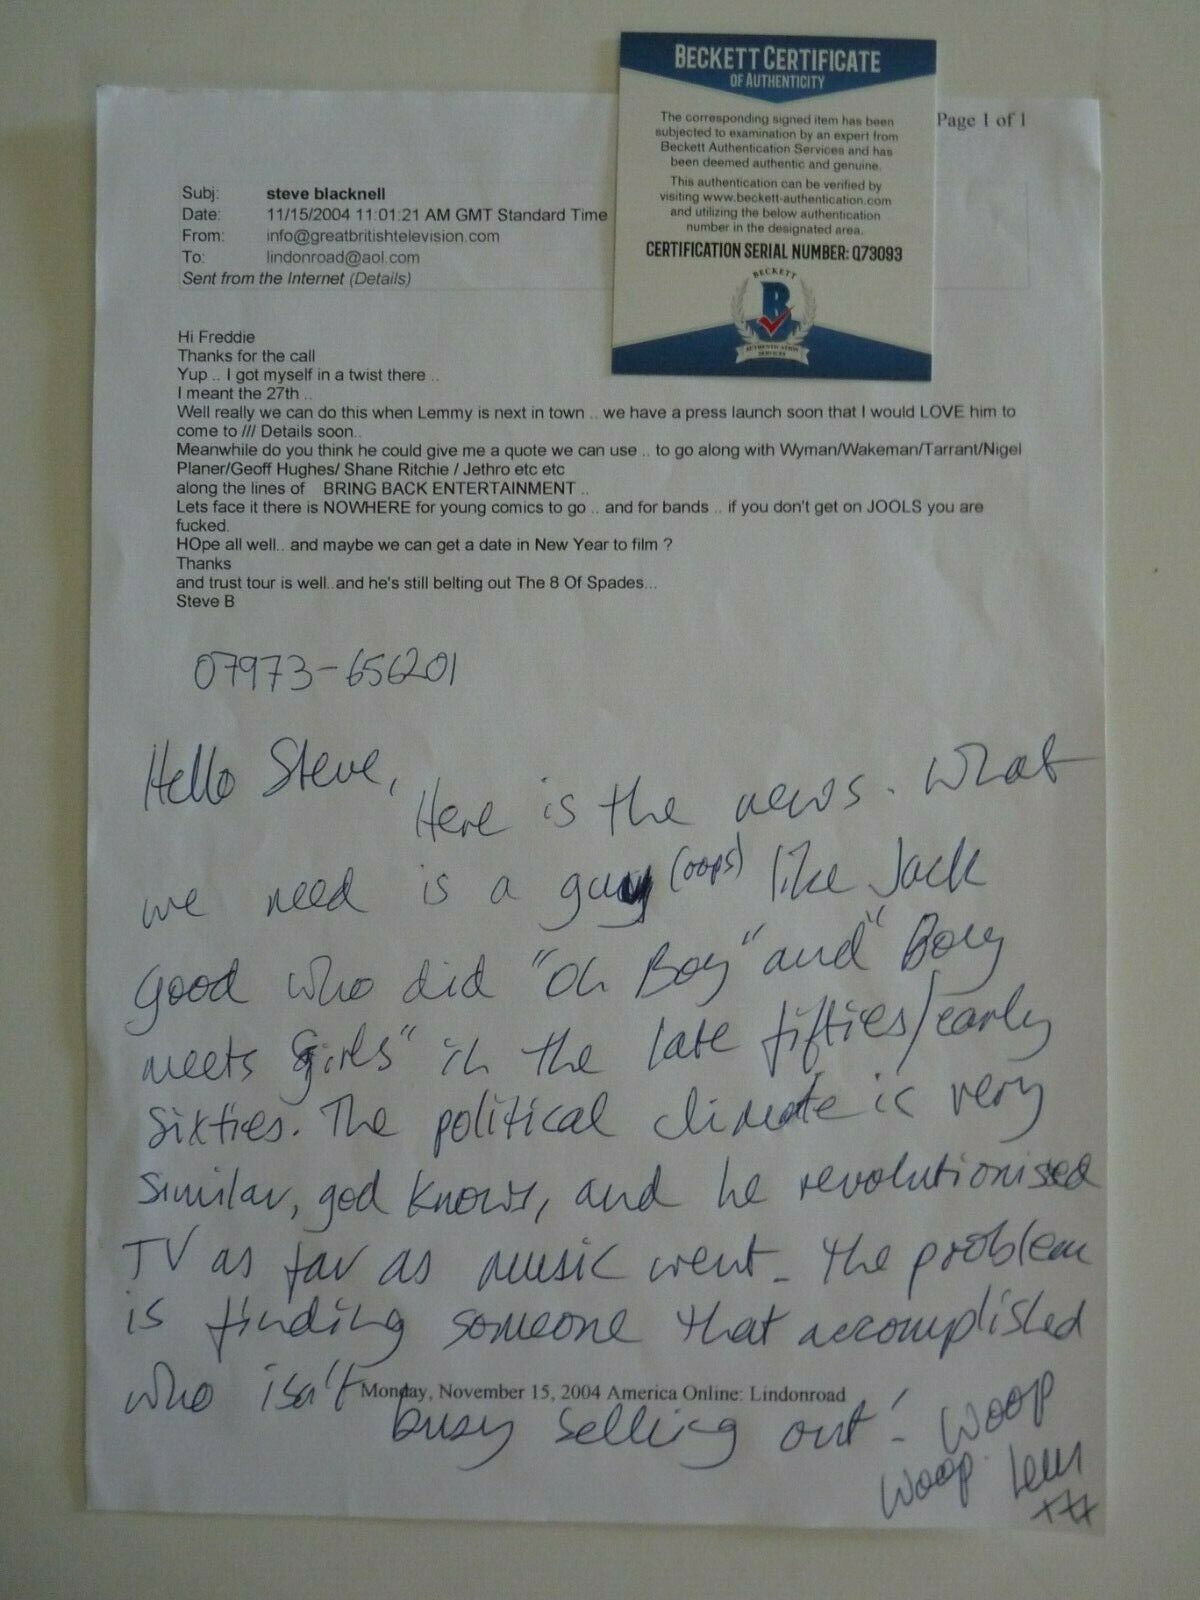 BECKETT CERTIFICATE
OF AUTHENTICITY
The corresponding signed item has been
subjected to examination by an expert from
Beckett Authentication Services and has
been deemed authentic and genuine.
This authentication can be verified by
visiting www.beckett-authentication.com
and utilizing the below authentication
number in the designated area.
CERTIFICATION SERIAL NUMBER: Q73093
BECKETT
B
AUTHENTICATION
SERVICES
Page 1 of 1
Subj: steve blacknell
Date: 11/15/2004 11:01:21 AM GMT Standard Time
From: info@greatbritishtelevision.com
To: lindonroad@aol.com
Sent from the Internet (Details)
Hi Freddie
Thanks for the call
Yup .. I got myself in a twist there ..
I meant the 27th ..
Well really we can do this when Lemmy is next in town .. we have a press launch soon that I would LOVE him to
come to /// Details soon..
Meanwhile do you think he could give me a quote we can use .. to go along with Wyman/Wakeman/Tarrant/Nigel
Planer/Geoff Hughes/ Shane Ritchie / Jethro etc etc
along the lines of BRING BACK ENTERTAINMENT ..
Lets face it there is NOWHERE for young comics to go .. and for bands .. if you don't get on JOOLS you are
fucked.
HOpe all well.. and maybe we can get a date in New Year to film ?
Thanks
and trust tour is well..and he's still belting out The 8 Of Spades...
Steve B
07973-656201
Hello Steve,
Here is the news. What
we need is a guy (oops) like Jack
Good who did "Oh Boy" and "Boy
meets Girls" in the late fifties/early
Sixties. The political climate is very
Similar, god knows, and he revolutionised
TV as far as music went_ The problem
is finding someone that accomplished
who isn't
Monday, November 15, 2004 America Online: Lindonroad
busy selling out! Woop
Woop. Lem
xxx